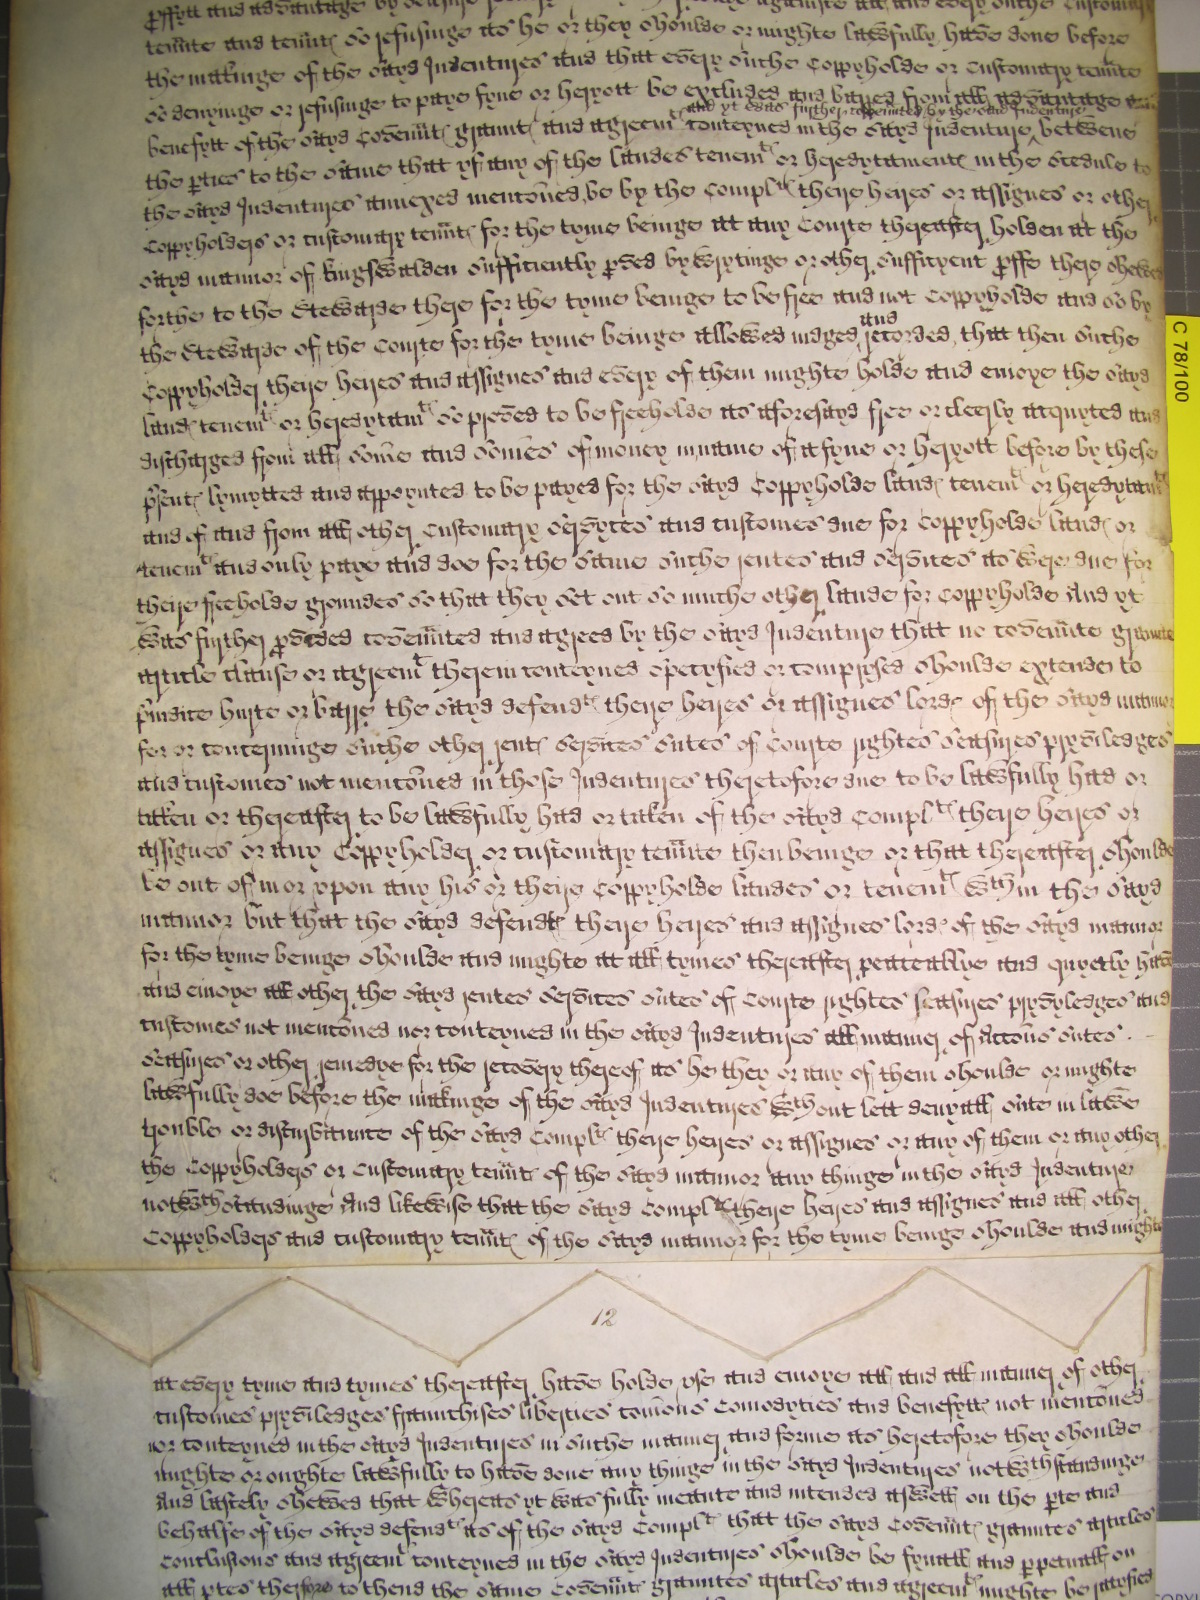 proffytt and advantage by
tennte and tennts so refusinge as he or they shoulde or mighte lawfully have done before
the makinge of the sayd Indentures and that every suche Coppyholde or Customary tennte
so denyinge or refusinge to paye fyne or heryott be excluded and barred from all advantage and
and yt was further appointed by the said Indenture
benefytt of the sayd Covennts graunts and agreemts conteyned in the sayd Indenture ^ betwene
the pties to the same that yf any of the landes tenemts or heredytaments in the Scedule to
the sayd Indentures annexed mentoned be by the Complts theyre heyres or assignes or other
Coppyholders or customary tennts for the tyme beinge att any Courte thereafter holden at the
sayd mannor of Kingswalden sufficiently pved by wrytinge or other suffycyent proffe there shewed
forthe to the Stewarde there for the tyme beinge to be free and not Coppyholde and so by
and
the Stewarde of the Courte for the tyme beinge allowed iudged recorded, that then suche
Coppyholder theyre heyres and assignes and every of them mighte holde and enioye the sayd
lands tenemts or heredytamts so proved to be freeholde as aforesayd free or cleerly acquyted and
discharged from all some and somes of money in name of a fyne or heryott before by these
psents lymytted and appoynted to be payed for the sayd Coppyholde lands tenemts or heredytamts
and of and from all other Customary servyces and customes due for Coppyholde lands or
tenemts and only paye and doe for the same suche rentes and services as were due for
theyre freeholde groundes so that they set out so muche other lande for Coppyholde And yt
was further pvided covennted and agreed by the sayd Indenture that no covennte graunte
article clause or agreemt therein conteyned specyfied or comprysed shoulde extende to
piudice hurte or barre the sayd defendts theyre heyres or assignes lords of the sayd mannor
for or concerninge suche other rents services sutes of Courte rightes seasures pryviledges
and customes not mentoned in those Indentures theretofore due to be lawfully had or
taken or thereafter to be lawfully had or taken of the sayd Complts theyre heyres or
assignes or any Coppyholder or customary tennte then beinge or that thereafter shoulde
be out of in or vpon any his or theyre Coppyholde landes or tenemts wthin the sayd
mannor but that the sayd defendts theyre heyres and assignes lords of the sayd mannor
for the tyme beinge shoulde and mighte at all tymes thereafter peaceablye and quyetly have
and enioye all other the sayd rentes services sutes of Courte rightes seasures pryvyledges and
customes not mentoned nor conteyned in the sayd Indentures all manner of Accons sutes
seasures or other remedye for the recovery thereof as he they or any of them shoulde or mighte
lawfully doe before the makinge of the sayd Indentures wthout lett denyall sute in lawe
trouble or disturbance of the sayd Complts theyre heyres or assignes or any of them or any other
the Coppyholders or Customary tennts of the sayd mannor any thinge in the sayd Indenture
notwthstandinge And likewise that the sayd Complts theyre heyres and assignes and all other
Coppyholders and customary tennts of the sayd mannor for the tyme beinge shoulde and mighte
12
at every tyme and tymes thereafter have holde vse and enioye all and all manner of other
customes pryviledges fraunchises liberties comons Comodyties and benefytts not mentoned
nor conteyned in the sayd Indentures in suche manner and forme as heretofore they shoulde
mighte or oughte lawfully to have done any thinge in the sayd Indentures notwthstandinge
And lastely shewed that whereas yt was fully meante and intended aswell on the pte and
behalfe of the sayd defendts as of the sayd Complts that the sayd Covennts grauntes articles
Conclusions and agreemts conteyned in the sayd Indentures shoulde be fynall and ppetuall on
all ptes therfore to thend the same Covennts grauntes articles and agreemts mighte be ratyfied
C 78/100